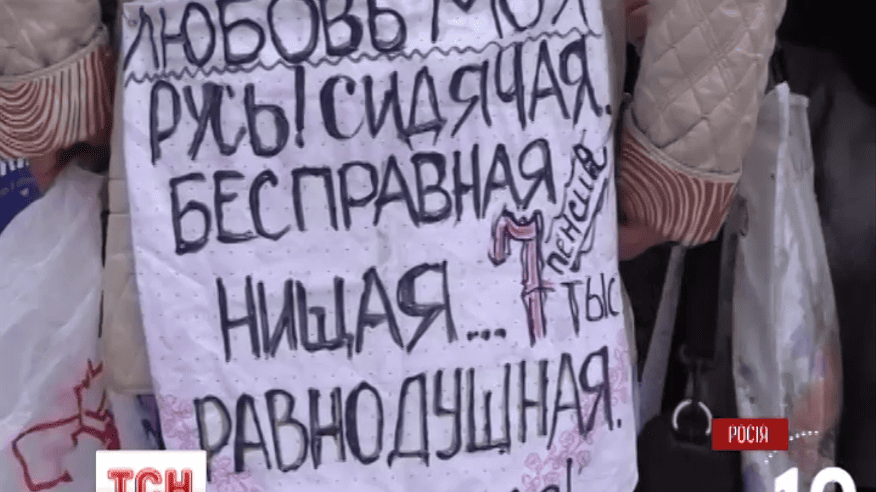 ЛЮБОВЬ МОЯ
РУСЬ! СИДЯЧАЯ.
БЕСПРАВНАЯ
НИЩАЯ... 7 ТЫС
ПЕНСИЯ
РАВНОДУШНАЯ.
РОСІЯ
ТСН